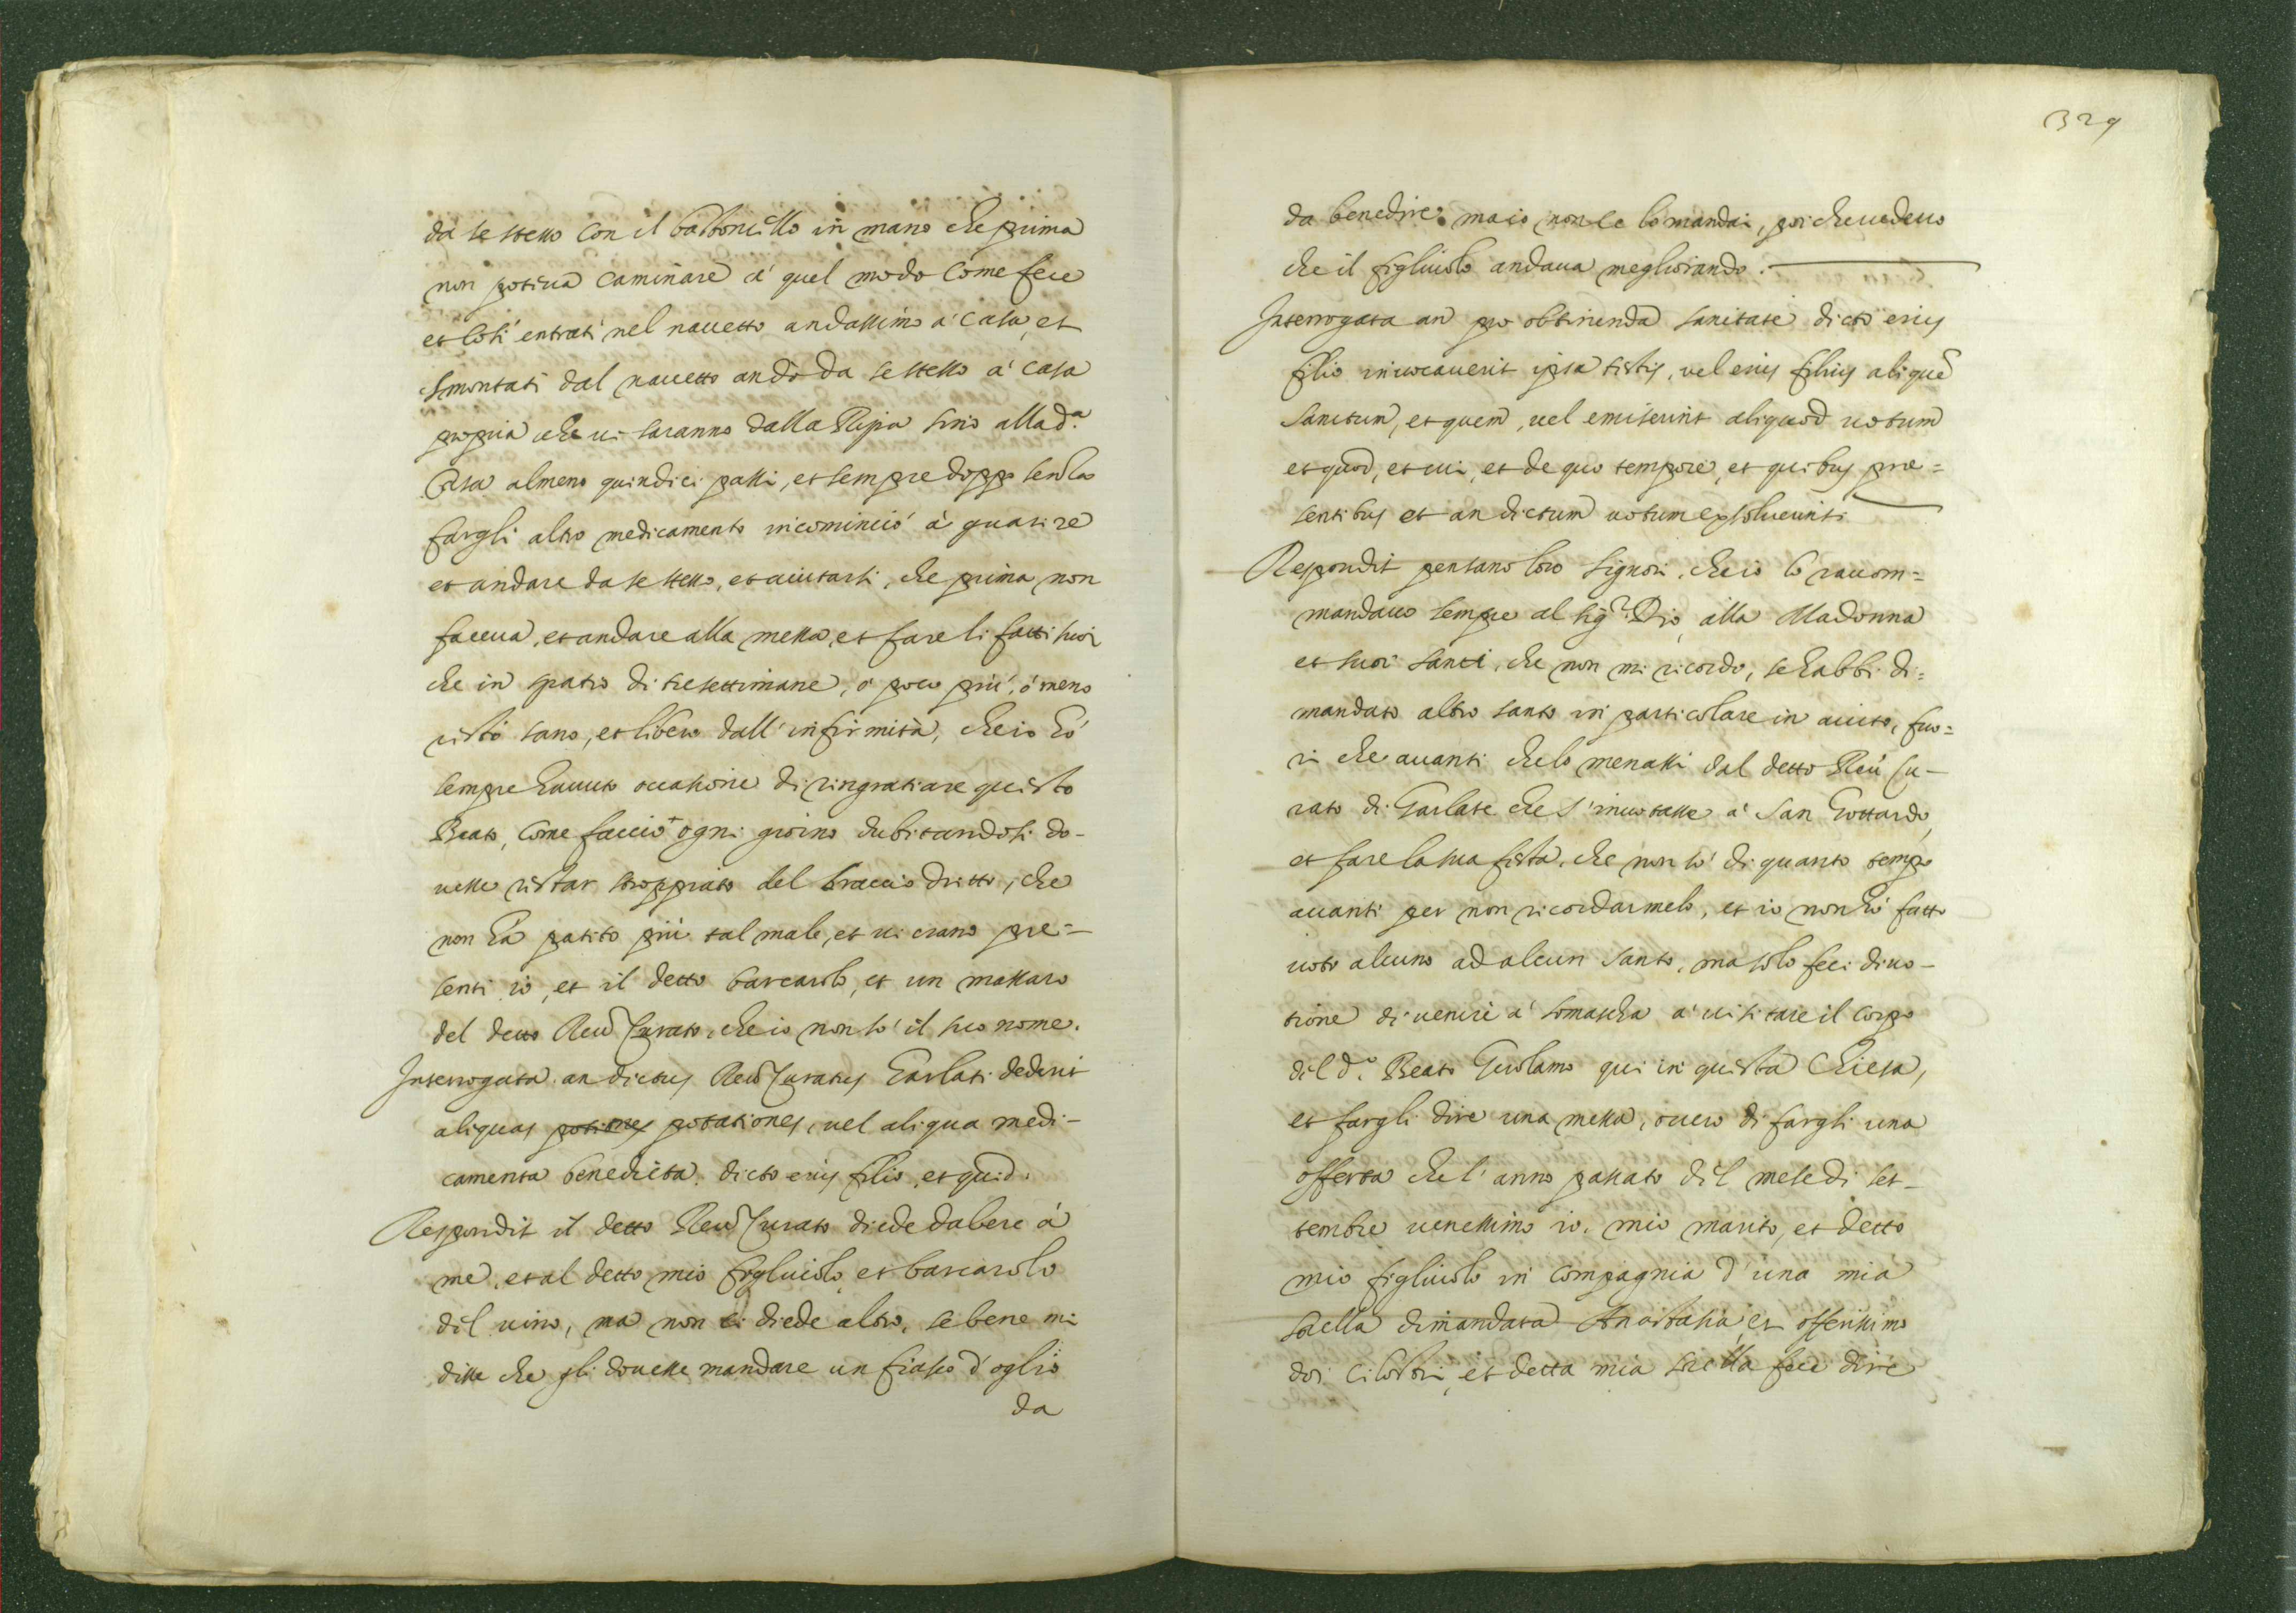 da se stesso con il bastoncello in mano che prima
non potiua caminare a' quel modo come fece
et cosi entrati nel nauetto andassimo a' casa, et
smontati dal nauetto andò da se stesso a' casa
propria che ui saranno dalla Ripa sino alla d.ª
Casa almeno quindici passi, et sempre doppo senza
fargli altro medicamento incominciò à guarire
et andare da se stesso, et aiutarsi, che prima non
faceua, et andare alla messa, et fare li fatti suoi
che in spatio di tre settimane, ó poco più, ó meno
restò sano, et libero dall' infirmità, che io hó
sempre hauuto occasione di ringratiare questo
Beato, come faccio ogni giorno dubitandosi do-
uesse restar stroppiato del braccio dritto, che
non há patito più tal male, et ui erano pre=
senti io, et il detto barcarolo, et un massaro
del detto Reu Curato, che io non só il suo nome.
Interrogata an dictus Reu Curatus Garlati dederit
aliquas potiones potationes, uel aliqua medi-
camenta benedicta dicto eius filio, et quid.
Respondit il detto Reu Curato diede da bere á
me, et al detto mio figliuolo, et barcarolo
del uino, ma non li diede altro, se bene mi
disse che gli douesse mandare un fiasco d' oglio
da
329
da benedire, ma io non le lo mandai, poi che uedeuo
che il figliuolo andaua megliorando.
Interrogata an pro obtinenda sanitate dicto eius
filio inuocauerit ipsa testis, uel eius filius aliquē
sanctum, et quem, uel emiserint aliquod uotum
et quod, et cui, et de quo tempore, et quibus pre=
sentibus et an dictum uotum exsoluerint.
Respondit pensano loro Signori, che io lo raccom=
mandauo sempre al Sig.r Dio, alla Madonna
et suoi santi, che non mi ricordo, se habbi di=
mandato altro santo in particolare in aiuto, fuo=
ri che auanti che lo menassi dal detto Reu Cu-
rato di Garlate che s' inuotasse a' San Gottardo,
et fare la sua festa, che non só di quanto tempo
auanti per non ricordarmelo, et io non hó fatto
uoto alcuno ad alcun Santo, ma solo feci diuo-
tione di uenire a' Somascha a' uisitare il corpo
del d.º Beato Girolamo qui in questa Chiesa,
et fargli dire una messa, ouero di fargli una
offerta che l' anno passato del mese di set-
tembre uenessimo io, mio marito, et detto
mio figliuolo in compagnia d' una mia
sorella dimandata Anastasia, et offerissimo
doi cilostri, et detta mia sorella fece dire